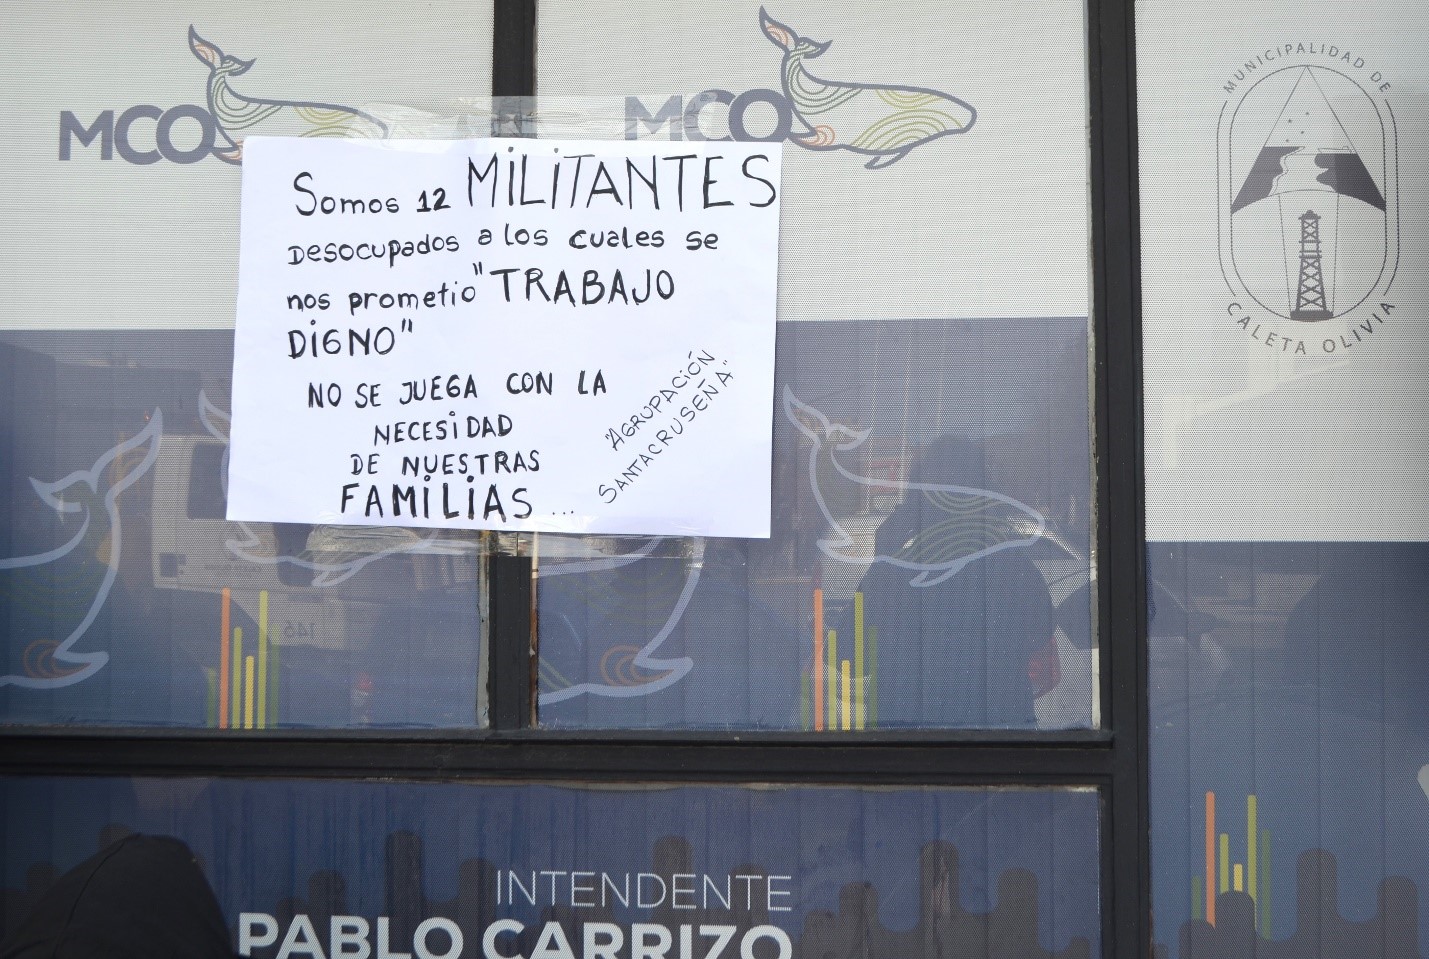 MCO
MCO
MUNICIPALIDAD DE
CALETA OLIVIA
Somos 12 MILITANTES
Desocupados a los cuales se
nos prometio "TRABAJO
DIGNO"
NO SE JUEGA CON LA
NECESIDAD
DE NUESTRAS
FAMILIAS...
"AGRUPACIÓN
SANTACRUSEÑA"
146
INTENDENTE
PABLO CARRIZO